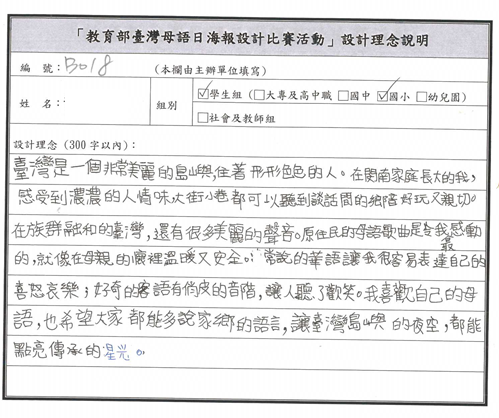 「教育部臺灣母語日海報設計比賽活動」設計理念說明
編 號：B018 (本欄由主辦單位填寫)
姓 名： 組別 ☑學生組 (□大專及高中職 □國中 ☑國小 □幼兒園)
□社會及教師組
設計理念 (300 字以內)：
臺灣是一個非常美麗的島嶼，住著形形色色的人。在閩南家庭長大的我，
感受到濃濃的人情味，大街小巷都可以聽到談話間的鄉音，好玩又親切。
在族群融和的臺灣，還有很多美麗的聲音。原住民的母語歌曲是令我最感動
的，就像在母親的懷裡溫暖又安全。常說的華語讓我很容易表達自己的
喜怒哀樂；好奇的客語有俏皮的音階，讓人聽了歡笑。我喜歡自己的母
語，也希望大家都能多說家鄉的語言，讓臺灣島嶼的夜空，都能
點亮傳承的星光。